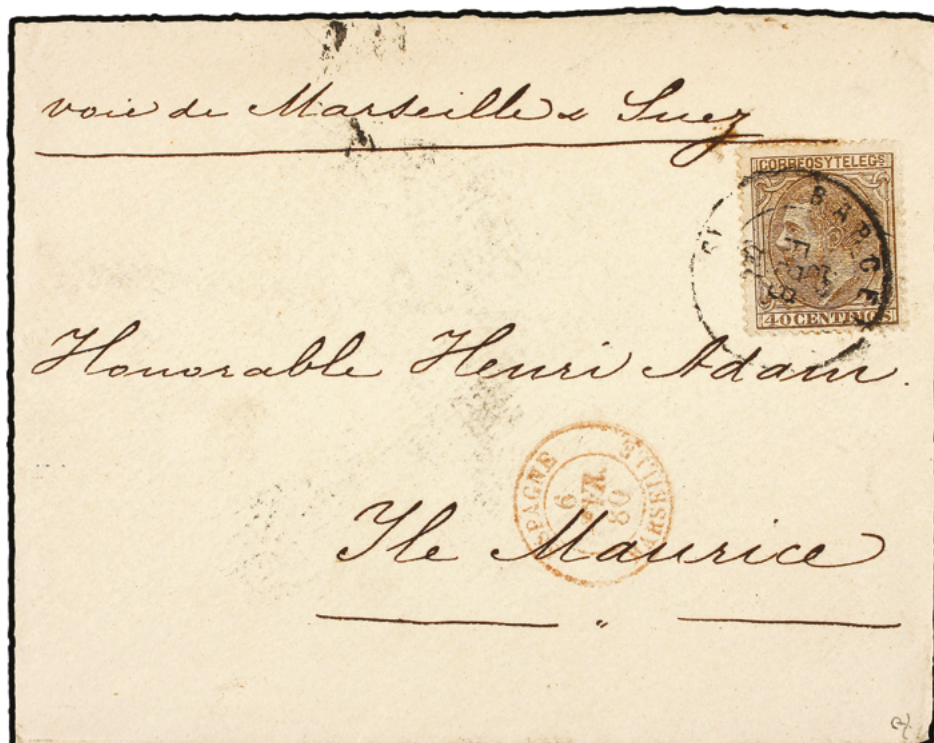 voie de Marseille & Suez
CORREOS Y TELEGS
BARCE
40 CENTIMOS
Honorable Henri Adam.
ESPAGNE
MARSEILLE
80
Ile Maurice